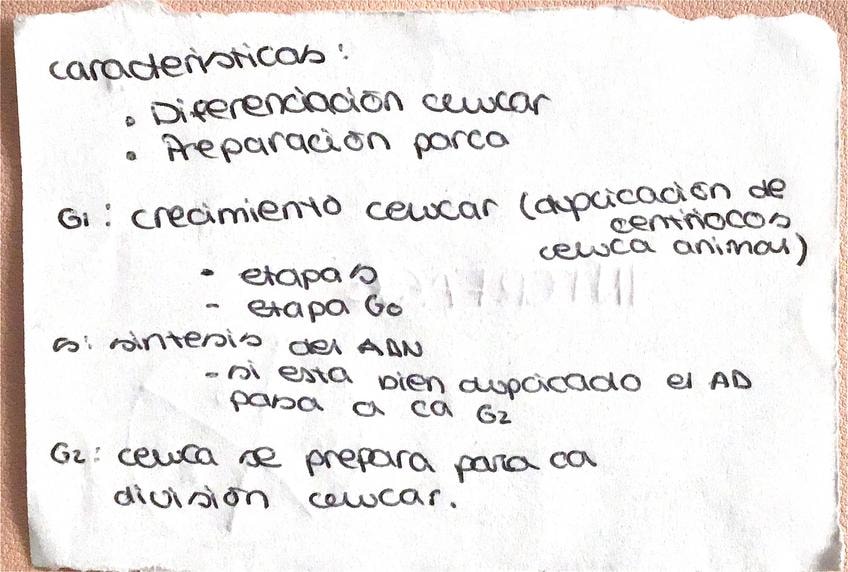 características:
• Diferenciación celular
• Preparación para
G1: crecimiento celular (duplicación de
centriolos
celula animal)
• etapa s
- etapa G0
s: sintesis del ADN
- si esta bien duplicado el AD
pasa a la G2
G2: celula se prepara para la
división celular.